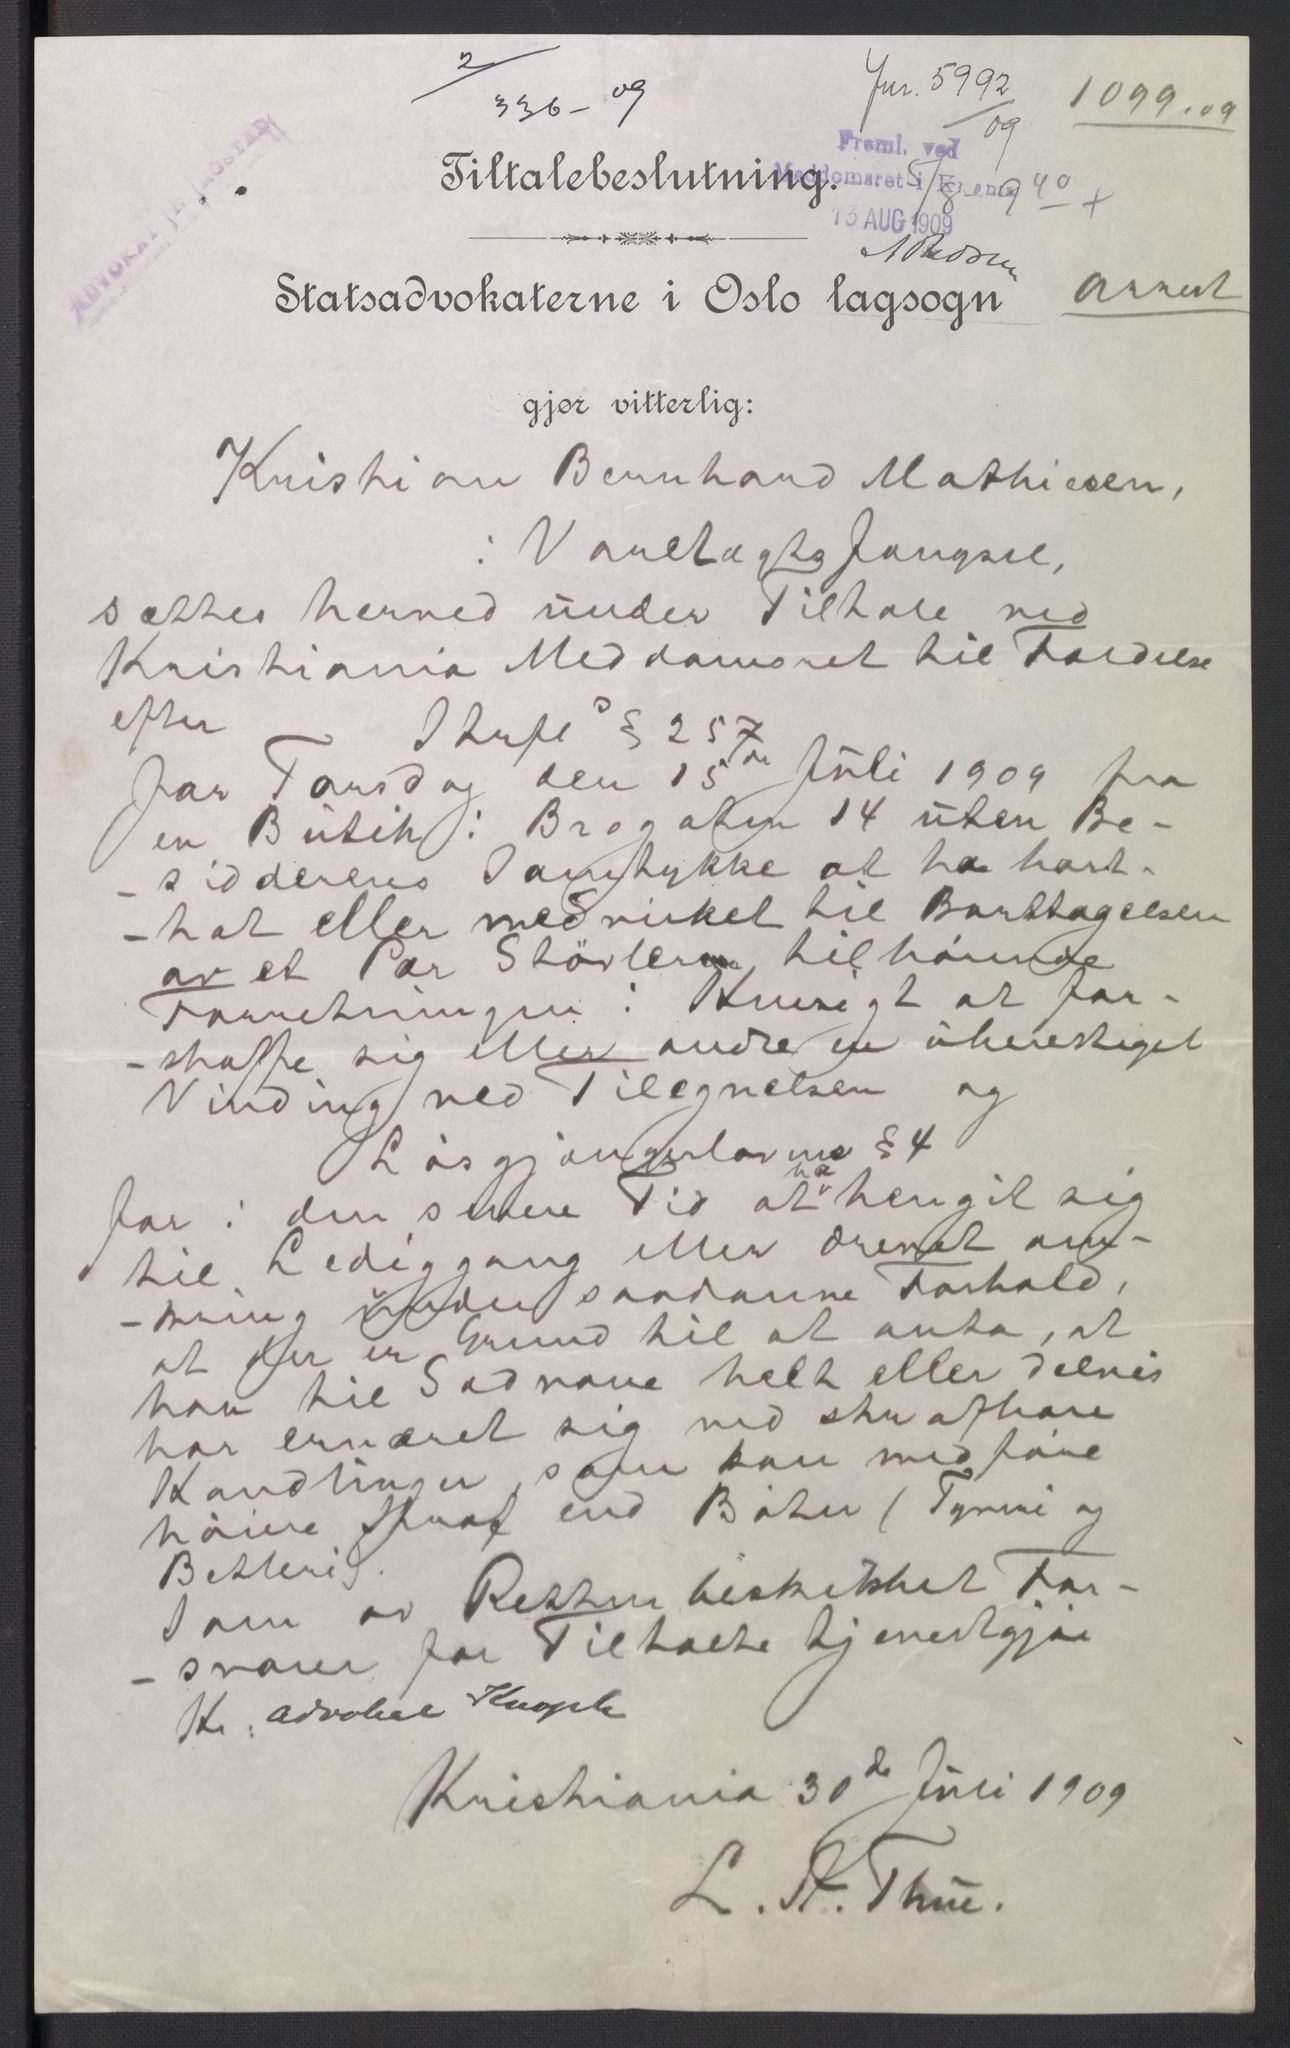 2/336-09
Jnr. 5992/09
1099.09
Freml. ved
Meddomsret i Kr.ania
13 AUG 1909
5/8 9 40 +
ADVOKAT
Tiltalebeslutning.
Statsadvokaterne i Oslo lagsogn
arrest
gjør vitterlig:
Kristian Bernhard Mathiesen,
i Varetægtsfængsel,
sættes herved under Tiltale ved
Kristiania Meddomsret til Fældelse
efter Strfl's § 257
for Torsdag den 15de Juli 1909 fra
en Butik i Brogaten 14 uten Be-
-sidderens Samtykke at ha bort-
-tat eller medvirket til Borttagelsen
av et Par Støvler tilhørende
Forretningen i Hensigt at for-
-skaffe sig eller andre en uberettiget
Vinding ved Tilegnelsen og
Løsgjængerlovens § 4
for i den senere Tid at ha hengit sig
til Lediggang eller drevet om-
-kring under saadanne Forhold,
at der er Grund til at anta, at
han til Sædvane helt eller delvis
har ernæret sig ved strafbare
Handlinger, som kan medføre
høiere Straf end Bøter (Tyveri og
Betleri).
Som av Retten beskikket For-
-svarer for Tiltalte tjenestgjør
Hr. advokat
Kristiania 30de Juli 1909
L. St. Thue.